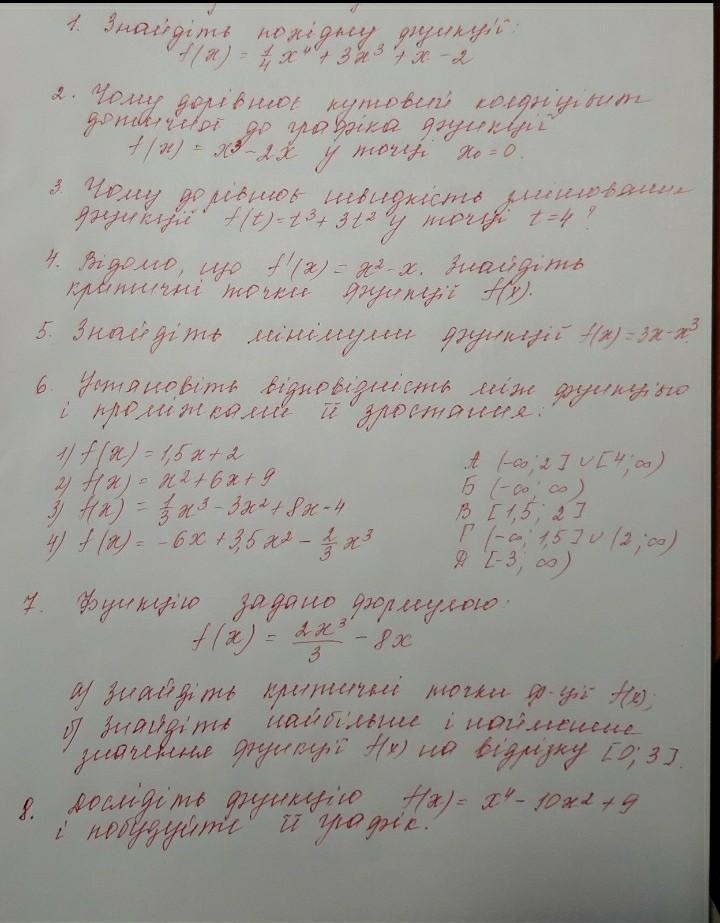 1. Знайдіть похідну функції:
f(x) = 1/4 x⁴ + 3x³ + x - 2
2. Чому дорівнює кутовий коефіцієнт
дотичної до графіка функції
f(x) = x³ - 2x у точці x₀ = 0.
3. Чому дорівнює швидкість змінювання
функції f(t) = t³ + 3t² у точці t = 4?
4. Відомо, що f'(x) = x² - x. Знайдіть
критичні точки функції f(x).
5. Знайдіть мінімуми функції f(x) = 3x - x³.
6. Установіть відповідність між функцією
і проміжками її зростання:
1) f(x) = 1,5x + 2
А (-∞; 2] ∪ [4; ∞)
2) f(x) = x² + 6x + 9
Б (-∞; ∞)
3) f(x) = 1/3 x³ - 3x² + 8x - 4
В [1,5; 2]
4) f(x) = -6x + 3,5x² - 2/3 x³
Г (-∞; 1,5] ∪ (2; ∞)
Д [-3; ∞)
7. Функцію задано формулою:
f(x) = 2x³/3 - 8x
а) знайдіть критичні точки ф-ції f(x);
б) знайдіть найбільше і найменше
значення функції f(x) на відрізку [0; 3].
8. Дослідіть функцію f(x) = x⁴ - 10x² + 9
і побудуйте її графік.